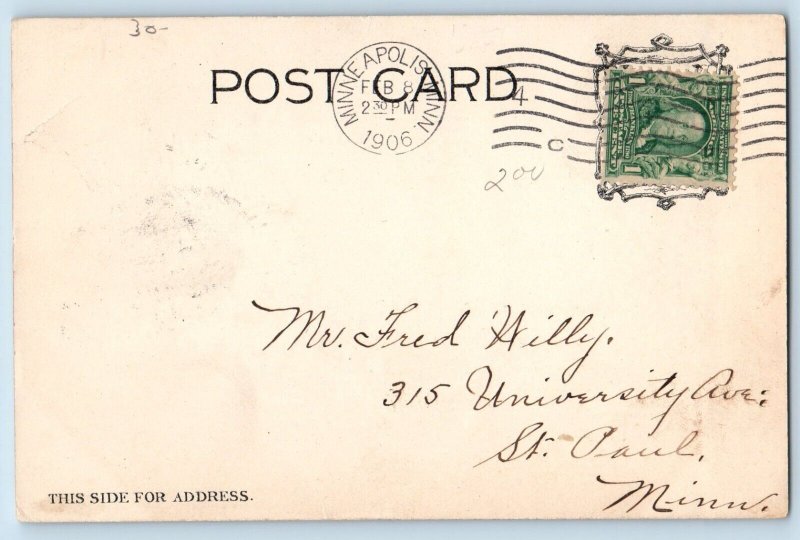 30-
POST CARD
MINNEAPOLIS, MINN.
FEB 8
2 30 PM
1906
4
C
200
1
1
Mr. Fred Willy.
315 University Ave:
St. Paul.
Minn.
THIS SIDE FOR ADDRESS.